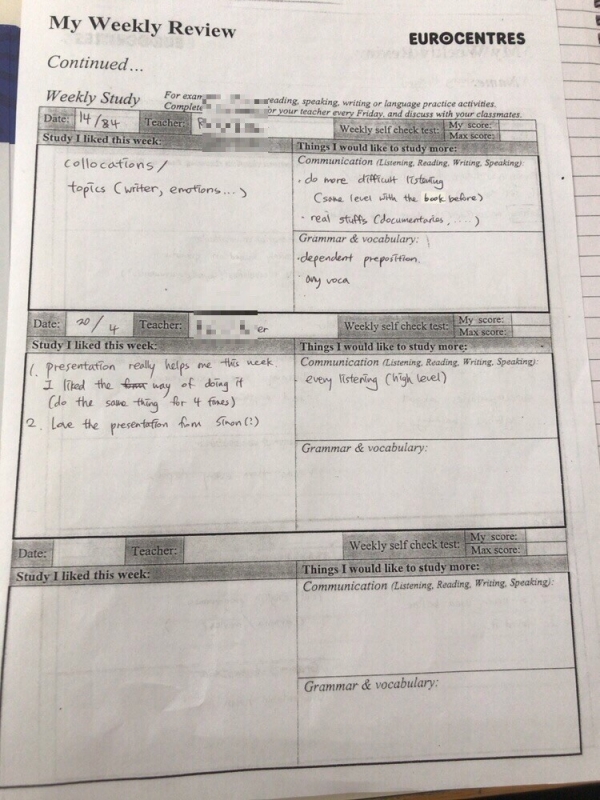 My Weekly Review
EUROCENTRES
Continued...
Weekly Study
For exam reading, speaking, writing or language practice activities.
Complete or your teacher every Friday, and discuss with your classmates.
Date: 14/84 Teacher: R Weekly self check test: My score:
Max score:
Study I liked this week:
collocations /
topics (writer, emotions...)
Things I would like to study more:
Communication (Listening, Reading, Writing, Speaking)
· do more difficult listening
(same level with the book before)
· real stuffs (documentaries, ....)
Grammar & vocabulary:
·dependent preposition.
· any voca
Date: 20/4 Teacher: er Weekly self check test: My score:
Max score:
Study I liked this week:
1. presentation really helps me this week.
I liked the way of doing it
(do the same thing for 4 times)
2. Love the presentation from Simon(!)
Things I would like to study more:
Communication (Listening, Reading, Writing, Speaking):
· every listening (high level)
Grammar & vocabulary:
Date: Teacher: Weekly self check test: My score:
Max score:
Study I liked this week:
Things I would like to study more:
Communication (Listening, Reading, Writing, Speaking):
Grammar & vocabulary: